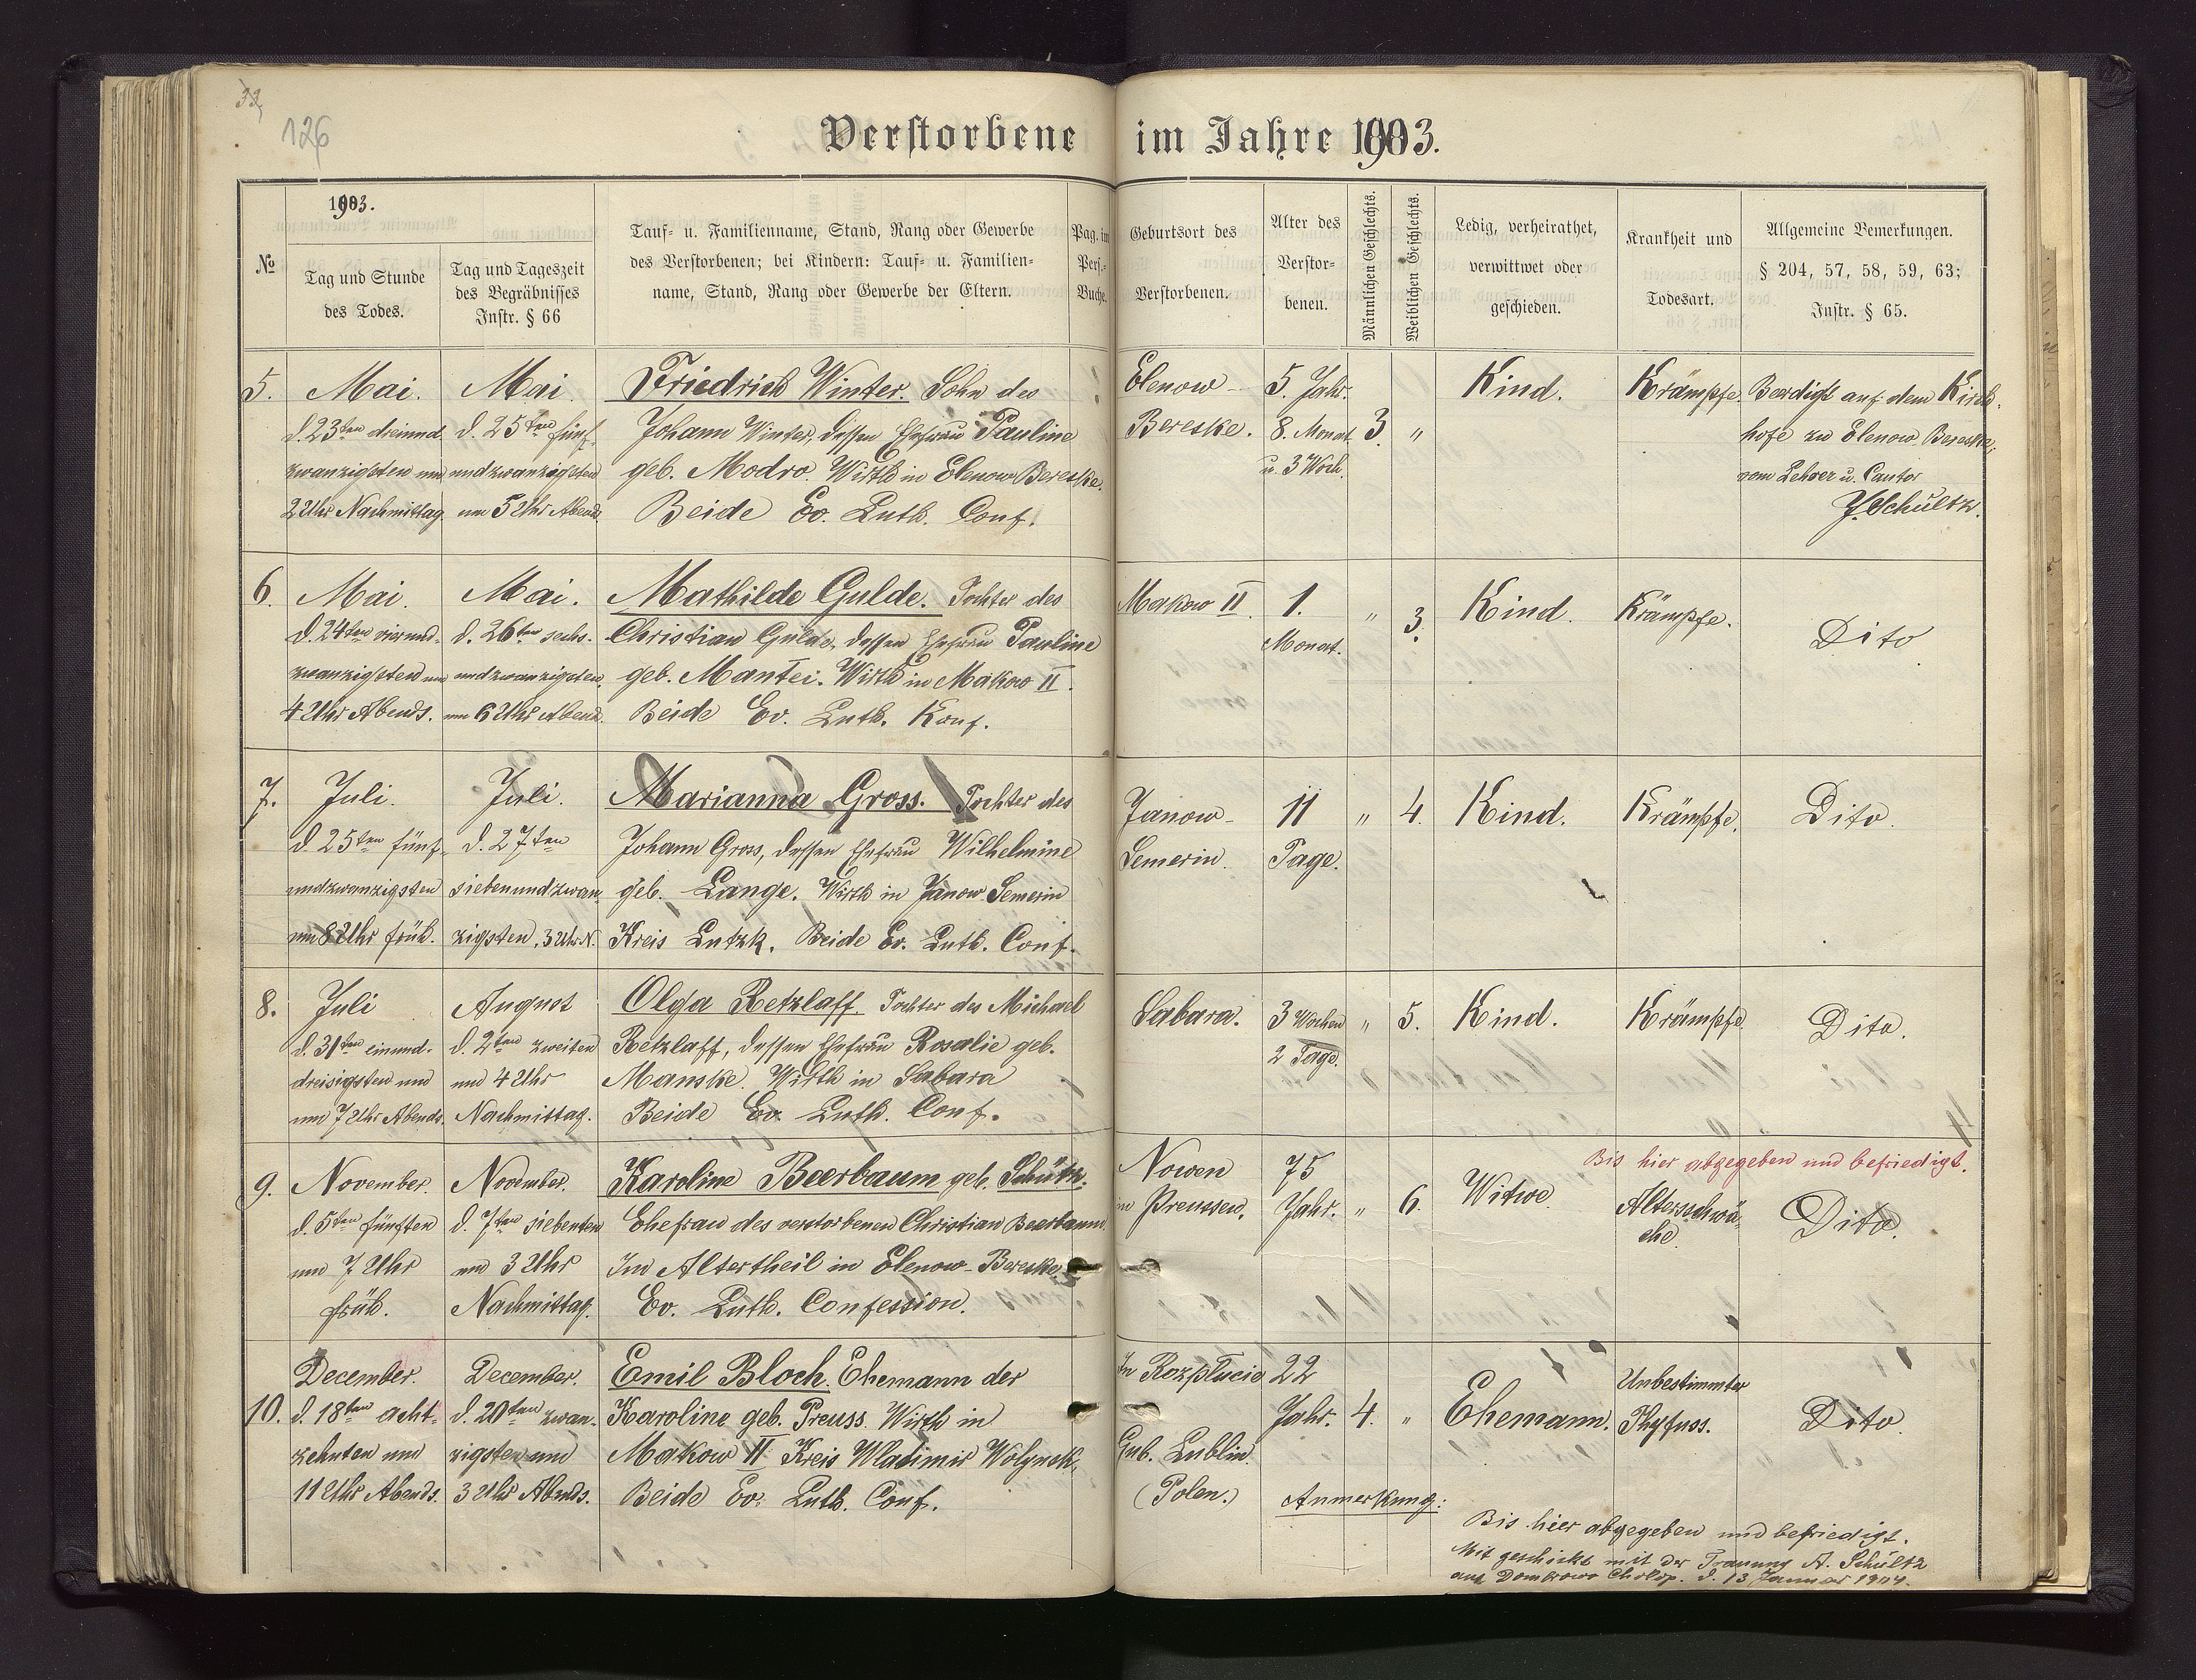 33,
126
Verstorbene im Jahre 1903.
1903.
№
Tag und Stunde
des Todes.
Tag und Tageszeit
des Begräbnisses
Instr. § 66
Tauf- u. Familienname, Stand, Rang oder Gewerbe
des Verstorbenen; bei Kindern: Tauf- u. Familien-
name, Stand, Rang oder Gewerbe der Eltern.
Pag. im
Pers.-
Buche.
Geburtsort des
Verstorbenen.
Alter des
Verstor-
benen.
Männlichen Geschlechts.
Weiblichen Geschlechts.
Ledig, verheirathet,
verwittwet oder
geschieden.
Krankheit und
Todesart.
Allgemeine Bemerkungen.
§ 204, 57, 58, 59, 63;
Instr. § 65.
5.
Mai.
d. 23ten dreiund
zwanzigsten um
2 Uhr Nachmittag
Mai
d. 25ten fünf-
undzwanzigsten
um 5 Uhr Abends.
Friedrich Winter. Sohn des
Johann Winter, dessen Ehefrau Pauline
geb. Modro. Wirth in Elenow Bereske.
Beide Ev. Luth. Conf.
Elenow-
Bereske.
5. Jahr.
8. Monat
u. 3 Woch.
3.
"
Kind.
Krämpfe.
Beerdigt auf dem Kirch-
hofe zu Elenow Bereske,
vom Lehrer u. Cantor
J. Schultz.
6.
Mai.
d. 24ten vierund-
zwanzigsten um
4 Uhr Abends.
Mai.
d. 26ten sechs-
undzwanzigsten,
um 6 Uhr Abend.
Mathilde Gulde. Tochter des
Christian Gulde, dessen Ehefrau Pauline
geb. Mantei. Wirth in Makow II.
Beide Ev. Luth. Konf.
Makow II
1.
Monat.
"
3.
Kind.
Krämpfe.
Dito
7.
Juli.
d. 25ten fünf-
undzwanzigsten
um 8 Uhr früh.
Juli.
d. 27ten
siebenundzwan-
zigsten, 3 Uhr N.
Marianna Gross. Tochter des
Johann Gross, dessen Ehefrau Wilhelmine
geb. Lange. Wirth in Janow Semerin
Kreis Lutzk. Beide Ev. Luth. Conf.
Janow-
Semerin.
11
Tage.
"
4.
Kind.
Krämpfe.
Dito.
8.
Juli
d. 31ten einund-
dreisigsten und
um 7 Uhr Abends.
August
d. 2ten zweiten
um 4 Uhr
Nachmittag.
Olga Retzlaff. Tochter des Michael
Retzlaff, dessen Ehefrau Rosalie geb.
Manske. Wirth in Sabara
Beide Ev. Luth. Conf.
Sabara.
3 Wochen
2 Tage.
"
5.
Kind.
Krämpfe.
Dito.
Bis hier abgegeben und befriedigt.
9.
November.
d. 5ten fünften
um 7 Uhr
früh.
November.
d. 7ten siebenten
um 3 Uhr
Nachmittag.
Karoline Beerbaum geb. Schütz.
Ehefrau des verstorbenen Christian Beerbaum.
Im Altertheil in Elenow-Bereske.
Ev. Luth. Confession.
Nowen
in Preussen.
75
Jahr.
"
6.
Witwe
Altersschwä-
che
Dito.
10.
December.
d. 18ten acht-
zehnten um
11 Uhr Abends.
December.
d. 20ten zwan-
zigsten um
3 Uhr Abends.
Emil Bloch. Ehemann der
Karoline geb. Preuss. Wirth in
Makow II Kreis Wladimir Wolynsk,
Beide Ev. Luth. Conf.
In Rozplucie
Gub. Lublin.
(Polen.)
22
Jahr.
4.
"
Ehemann.
Unbestimmter
Thyfuss.
Dito.
Anmerkung:
Bis hier abgegeben und befriedigt.
Mit geschickt mit der Trauung A. Schultz
aus Dombrowo d. 13 Januar 1904.